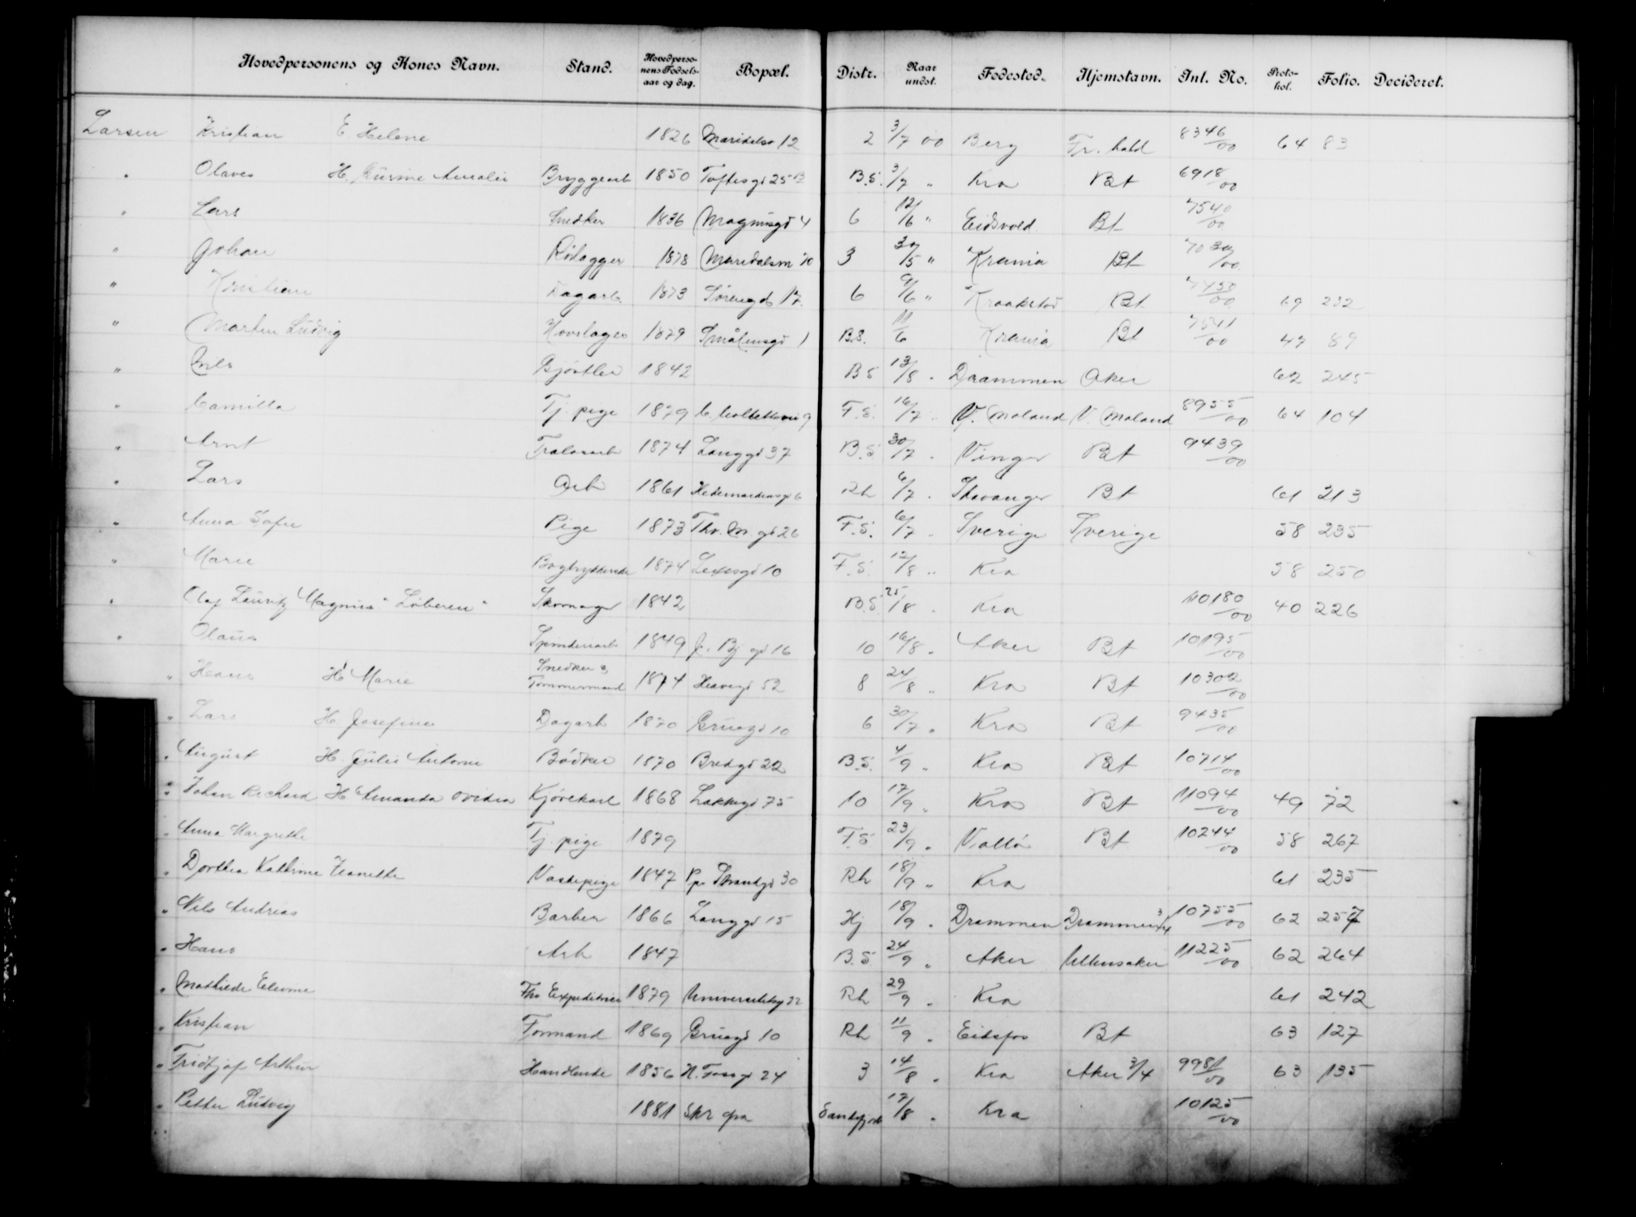 Hovedpersonens og Kones Navn. Stand. Hovedpersonens Fødselsaar og dag. Bopæl. Distr. Naar undst. Fødested. Hjemstavn. Inl. No. Protokol. Folio. Decideret.
Larsen Kristian E Helene 1826 Maridalsv 12 2 3/7 00 Berg Fr. hald 8346/00 64 83
" Olaves H. Amalie Bryggearb 1850 Toftesgd 25 B B.S. 3/7 " Kra Bt 6918/00
" Lars Snedker 1836 Magnusgd 4 6 12/6 " Eidsvold Bt 7540/00
" Johan Rølægger 1878 Maridalsvn 70 3 30/5 " Krania Bt
" Kristian Dagarb 1873 Sørengd 17 6 9/6 " Kraakstad Bt 7458/00 69 232
" Martin Ludvig Hovslager 1879 Smålensgd 1 B.S. 11/6 Krania Bt 7541/00 47 89
" Nils 1842 B S 13/8 " Drammen Aker 62 245
" Camilla Tj. pige 1879 9 F.S. 16/7 " V. Moland V. Moland 8955/00 64 104
" Arnt 1874 Langgd 37 B.S. 30/7 " Vinger Bt 9439/00
" Lars Arb 1861 Hedemarkensgd 6 Rh 6/7 " Stavanger Bt 61 213
" Anna Sofie Pige 1873 Thv. M gd 26 F.S. 6/7 " Sverige Sverige 58 235
" Marie 1874 10 F.S. 12/8 " Kra 58 250
" Olaf Lauritz Magnus "Løberen" Skomager 1842 B.S. 25/8 " Kra 10180/00 40 226
" Olaus 1849 J. Bj gd 16 10 16/8 " Aker Bt 10195/00
" Hans H Marie Snedker & Tømmermand 1874 52 8 24/8 " Kra Bt 10302/00
" Lars H. Josefine Dagarb 1870 Gruegd 10 6 30/7 " Kra Bt 9435/00
" August H. Julie Antonie Bødker 1870 Bredgd 22 B.S. 4/9 " Kra Bt 10714/00
" Johan Richard H Amanda Ovidia Kjørekarl 1868 Lakkegd 75 10 17/9 " Kra Bt 11094/00 49 72
" Anna Margrethe Tj. pige 1879 F.S 23/9 " Valløi Bt 10244/00 58 267
" Dorthea Kathrine Jeanette Vaskepige 1847 Pr Strandgd 30 Rh 18/9 " Kra 61 235
" Nils Andreas Barber 1866 Langgd 15 Hj 18/9 " Drammen Drammen 3/4 10755/00 62 257
" Hans Arb 1847 B.S 24/9 " Aker Ullensaker 11225/00 62 264
" Mathilde Elevine Fhv Expeditrice 1879 Universitetsg 22 Rh 29/9 " Kra 61 242
" Kristian Formand 1869 Gruegd 10 Rh 11/9 " Eidsfos Bt 63 127
" Fridtjof Arthur Handlende 1856 N. Fossgd 24 3 14/8 " Kra Aker 3/4 9981/00 63 135
" Petter Ludvig 1881 Skr fra Sandefjord 17/8 " Kra 10125/00